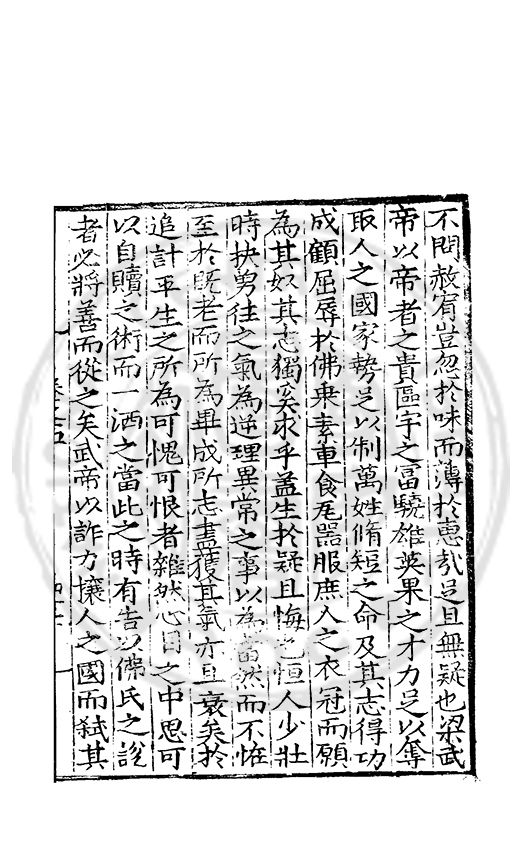 不問赦宥豈忽於味而薄於惠哉是且無疑也梁武
帝以帝者之貴區宇之富驍雄英果之才力足以奪
取人之國家勢足以制萬姓脩短之命及其志得功
成顧屈辱於佛乗素車食瓦器服庶人之衣冠而願
為其奴其志獨奚求乎蓋生於疑且悔也恒人少壯
時抉勇往之氣為逆理異常之事以為當然而不恠
至於既老而所為畢成所志盡獲其氣亦且衰矣於
追計平生之所為可愧可恨者雜然心目之中思可
以自贖之術而一洒之當此之時有告以佛氏之說
者必將善而從之矣武帝以詐力攘人之國而弒其
卷之五